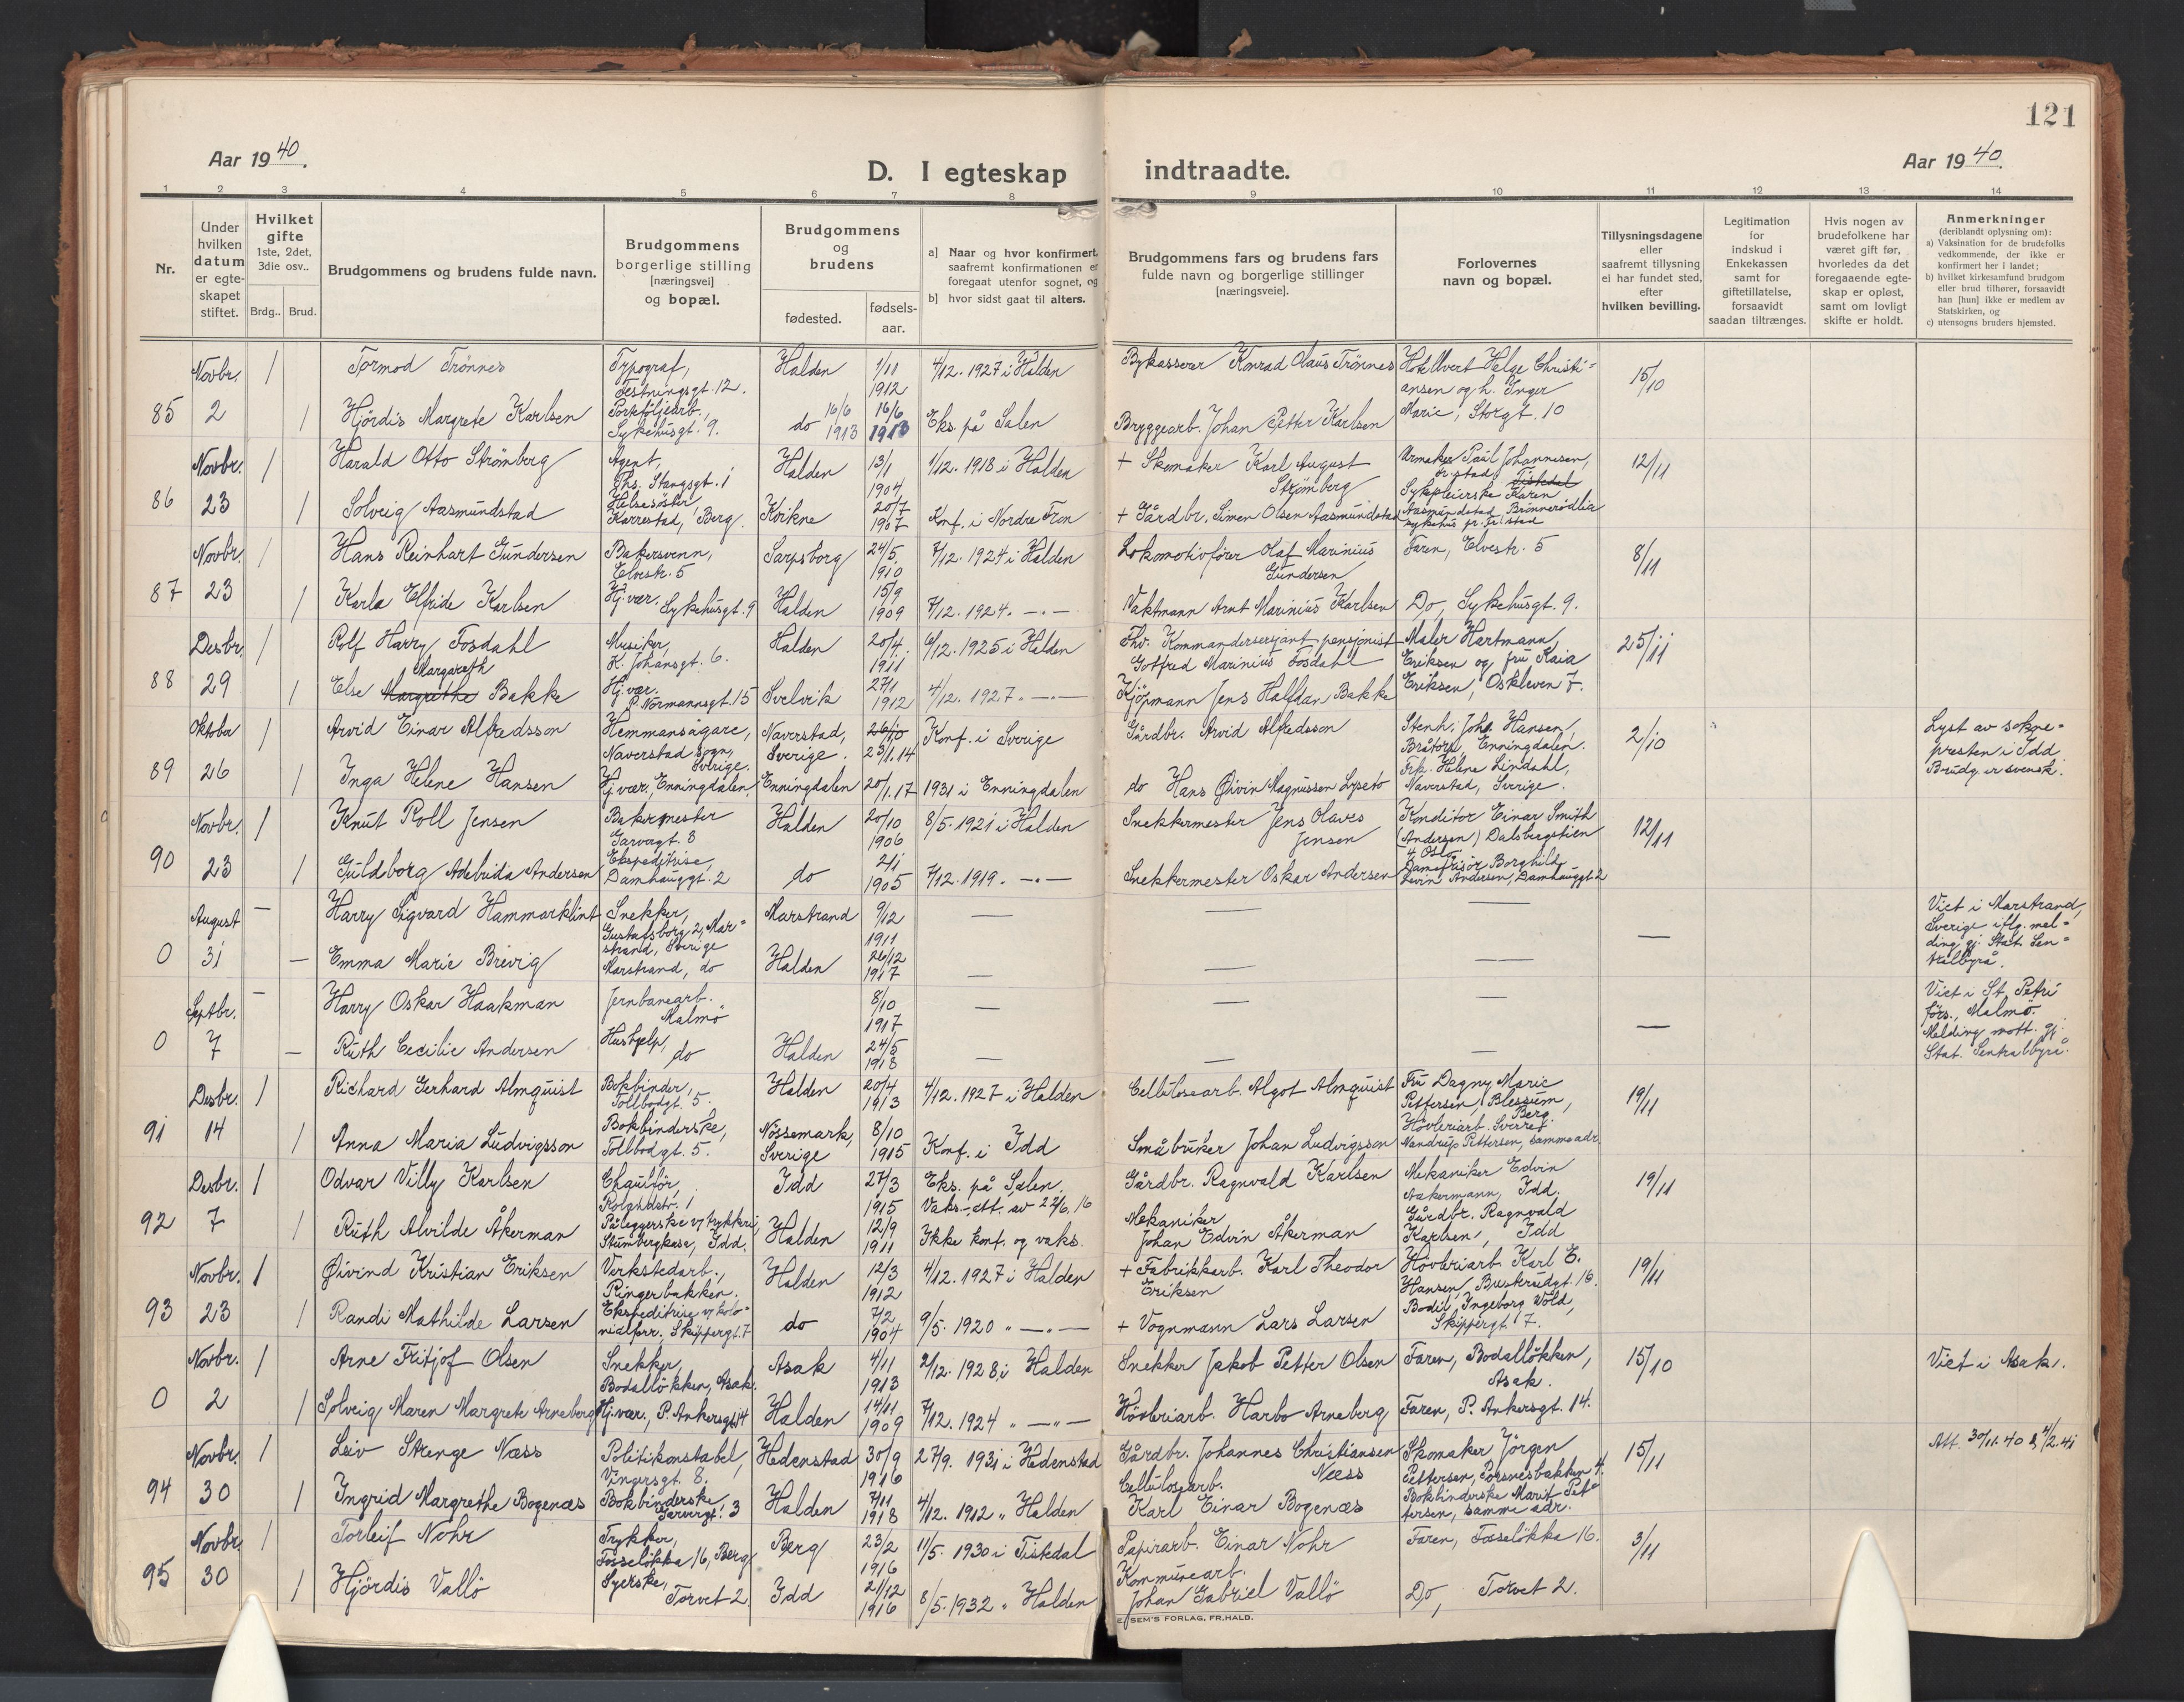 121
Aar 1940.
D. I egteskap indtraadte.
Aar 1940.
1 2 3 4 5 6 7 8 9 10 11 12 13 14
Nr.
Under hvilken datum er egte-skapet stiftet.
Hvilket gifte 1ste, 2det, 3die osv..
Brdg.. Brud.
Brudgommens og brudens fulde navn.
Brudgommens borgerlige stilling [næringsvei] og bopæl.
Brudgommens og brudens
fødested.
fødsels-aar.
a] Naar og hvor konfirmert, saafremt konfirmationen er foregaat utenfor sognet, og
b] hvor sidst gaat til alters.
Brudgommens fars og brudens fars fulde navn og borgerlige stillinger [næringsveie].
Forlovernes navn og bopæl.
Tillysningsdagene eller saafremt tillysning ei har fundet sted, efter hvilken bevilling.
Legitimation for indskud i Enkekassen samt for giftetillatelse, forsaavidt saadan tiltrænges.
Hvis nogen av brudefolkene har været gift før, hvorledes da det foregaaende egte-skap er opløst, samt om lovligt skifte er holdt.
Anmerkninger (deriblandt oplysning om):
a) Vaksination for de brudefolks vedkommende, der ikke er konfirmert her i landet;
b) hvilket kirkesamfund brudgom eller brud tilhører, forsaavidt han [hun] ikke er medlem av Statskirken, og
c) utensogns bruders hjemsted.
Novbr. 1 Tormod Trønnes Typograf, Festningsgt. 12. Halden 1/11 1912 4/12. 1927 i Halden Bykasserer Konrad Olaus Trønnes Hotellvert Helge Christi-ansen og h. Inger Marie, Storgt. 10 15/10
85 2 1 Hjördis Margrete Karlsen Porteföljearb., Sykehusgt. 9. do 16/6 1913 16/6 1913 Eks. på Salen Bryggearb. Johan Petter Karlsen
Novbr. 1 Harald Otto Strömberg Agent, Ths. Stangsgt. 1 Halden 13/1 1904 1/12. 1918 i Halden + Skomaker Karl August Strömberg Urmaker Paul Johannesen, Fr.stad, Tistedal 12/11
86 23 1 Solveig Aasmundstad Helsesöster Karrestad, Berg. Kvikne 20/7 1907 Konf. i Nordre Fron + Gårdbr. Simen Olsen Aasmundstad Sykepleierske Karen Aasmundstad, Brönnerödlia sykehus pr. Fr.stad
Novbr. 1 Hans Reinhart Gundersen Bakersvenn, Elvestr. 5 Sarpsborg 24/5 1910 7/12. 1924 i Halden Lokomotivfører Olaf Marinius Gundersen Faren, Elvestr. 5 8/11
87 23 1 Karla Elfride Karlsen Hj.vær. Sykehusgt. 9 Halden 15/9 1909 7/12. 1924. —.— Vaktmann Arnt Marinius Karlsen Do, Sykehusgt. 9.
Desbr. 1 Rolf Harry Fosdahl Musiker, K. Johansgt. 6. Halden 20/4. 1911 6/12. 1925 i Halden Fhv. Kommandersersjant, pensjonist Gotfred Marinius Fosdahl Maler Hartmann Eriksen og fru Kaia Eriksen, Oskleven 7. 25/11
88 29 1 Else Margreth Margrethe Bakke Hj.vær. P. Normannsgt. 15 Svelvik 27/1 1912 4/12. 1927. —.— Kjöpmann Jens Halfdan Bakke
Oktober 1 Arvid Einar Alfredsson Hemmansägare, Naverstad sogn, Sverige. Naverstad, Sverige. 26/10 23/1.14 Konf. i Sverige Gårdbr. Arvid Alfredsson Stenh. Johs. Hansen, Bråtorp, Enningdalen. 2/10 Lyst av sokne-presten i Idd. Brudg. er svensk.
89 26 1 Inga Helene Hansen Hj.vær., Enningdalen. Enningdalen 20/1.17 1931 i Enningdalen do Hans Øivin Magnussen Lyseto Frk. Helene Lindahl, Naverstad, Sverige.
Novbr. 1 Knut Roll Jensen Bakermester Garvergt. 8 Halden 20/10 1906 8/5. 1921 i Halden Snekkermester Jens Olaves Jensen Konditor Einar Smith (Andersen) Dalsbergstien 4, Oslo 12/11
90 23 1 Guldborg Adebrida Andersen Ekspeditrise, Damhauggt. 2 do 2/1 1905 7/12. 1919. —.— Snekkermester Oskar Andersen Damefrisör Borghild Levin Andersen, Damhauggt 2
August — Harry Sigvard Hammarklint Snekker, Gustafsborg 2, Mar-strand, Sverige Marstrand 9/12 1911 — — — Viet i Marstrand, Sverige iflg. mel-ding gj. Stat. Sen-tralbyrå.
0 31 — Emma Marie Brevig Marstrand, do Halden 26/12 1917 — — — —
Septbr. — Harry Oskar Haakman Jernbanearb. Malmö 8/10 1917 — — — Viet i St. Petri förs., Malmö. Melding mott. gj. Stat. Sentralbyrå.
0 7 — Ruth Cecilie Andersen Hushjelp, do Halden 24/5 1918 — — — —
Desbr. 1 Richard Gerhard Almquist Bokbinder, Tollbodgt. 5. Halden 20/4 1913 4/12. 1927 i Halden Cellulosearb. Algot Almquist Fru Dagny Marie Pettersen, Blessum, Berg. 19/11
91 14 1 Anna Maria Ludvigsson Bokbinderske, Tollbodgt. 5. Nössemark, Sverige 8/10 1915 Konf. i Idd Småbruker Johan Ludvigsson Hövleriarb. Sverre Nandrup Pettersen, samme adr.
Desbr. 1 Odvar Villy Karlsen Chaufför, Idd 27/3 1915 Eks. på Salen. Vaks.-att. av 22/6. 16 Gårdbr. Ragnvald Karlsen Mekaniker Edvin Aakermann, Idd. 19/11
92 7 1 Ruth Alvilde Åkerman Påleggerske v/ trykkeri, Stumbergkasa, Idd. Halden 12/9 1911 Ikke konf. og vaks. Mekaniker Johan Edvin Åkerman Gårdbr. Ragnvald Karlsen, Idd
Novbr. 1 Øivind Kristian Eriksen Verkstedarb., Ringerbakken. Halden 12/3 1912 4/12. 1927 i Halden + Fabrikkarb. Karl Theodor Eriksen Hövleriarb. Karl E. Hansen, Buskrudgt. 16. 19/11
93 23 1 Randi Mathilde Larsen Ekspeditrise v/ kolo-nialforr. Skippergt. 7 do 7/2 1904 9/5. 1920 " —.— + Vognmann Lars Larsen Bodil Ingeborg Wold, Skippergt. 7.
Novbr. 1 Arne Fritjof Olsen Snekker, Bodallökken, Asak. Asak 4/11 1913 2/12. 1928 i Halden Snekker Jakob Petter Olsen Faren, Bodallökken, Asak. 15/10 Viet i Asak.
0 2 1 Solveig Maren Margrete Arneberg Hj.vær., P. Ankersgt. 14 Halden 14/11 1909 7/12. 1924 " —"— Hövleriarb. Harbo Arneberg Faren, P. Ankersgt. 14.
Novbr. 1 Leiv Strenge Næss Politikonstabel, Vingersgt. 8. Hedenstad 30/9 1916 27/9. 1931 i Hedenstad Gårdbr. Johannes Christiansen Næss Skomaker Jörgen Pettersen, Porsnesbakken 4. 15/11 Att. 30/11. 40 & 4/2. 41
94 30 1 Ingrid Margrethe Bogenæs Bokbinderske, Garvergt. 3 Halden 7/11 1918 4/12. 1912 " Halden Cellulosearb. Karl Einar Bogenæs Bokbinderske Marit Pet-tersen, samme adr.
Novbr. 1 Torleif Nohr Trykker, Fosselökka 16, Berg Berg 23/2 1916 11/5. 1930 i Tistedal Papirarb. Einar Nohr Faren, Fosselökka 16. 3/11
95 30 1 Hjördis Vallö Syerske, Torvet 2. Idd 21/12 1916 8/5. 1932 " Halden Kommunearb. Johan Gabriel Vallö Do, Torvet 2.
SEM'S FORLAG, FR.HALD.